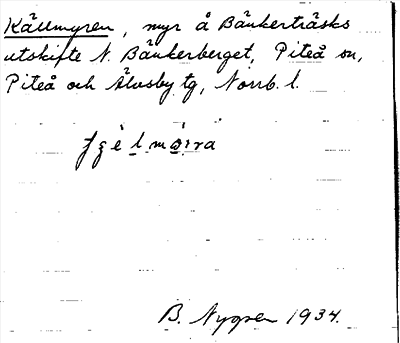 Källmyren, myr å Bänkerträsks
utskifte N. Bänkerberget, Piteå sn,
Piteå och Älvsby tg, Norrb. l.
B. Nygren 1934.